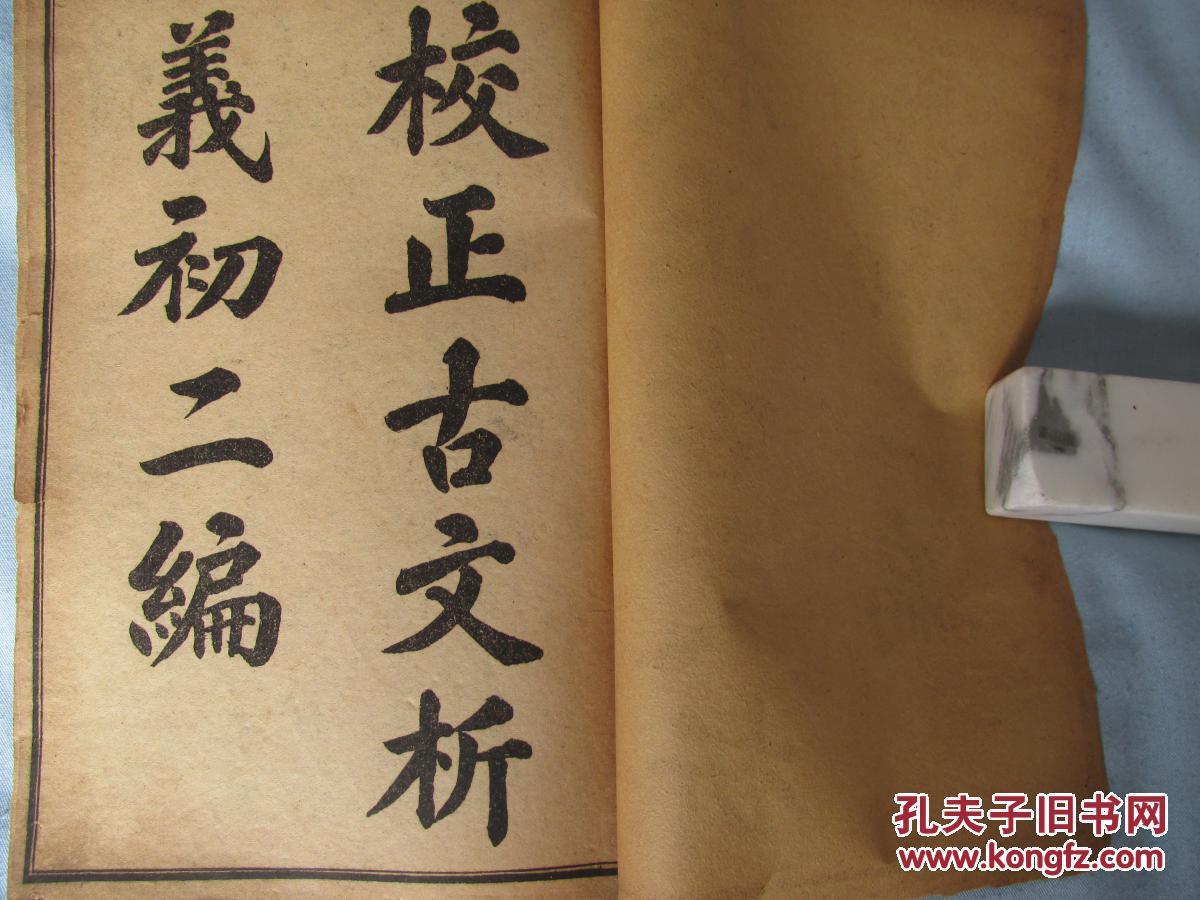 校正古文析
義初二編
孔夫子旧书网
www.kongfz.com